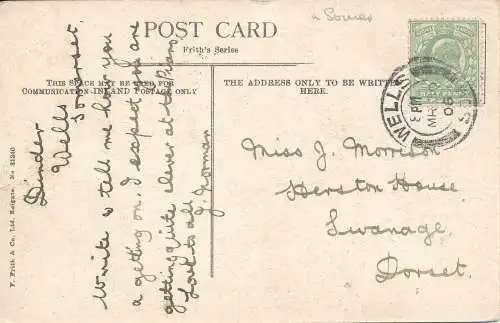 POST CARD
Frith's Series
THIS SPACE MAY BE USED FOR
COMMUNICATION-INLAND POSTAGE ONLY
THE ADDRESS ONLY TO BE WRITTEN
HERE.
Dinder
Wells
Somerset.
Write & tell me how you
a getting on. I expect you are
getting quite clever at the Piano
Love to all
J. Norman
Miss J. Morrison
Herston House
Swanage.
Dorset.
WELLS
3 PM
06
F. Frith & Co. Ltd., Reigate. No. 31340